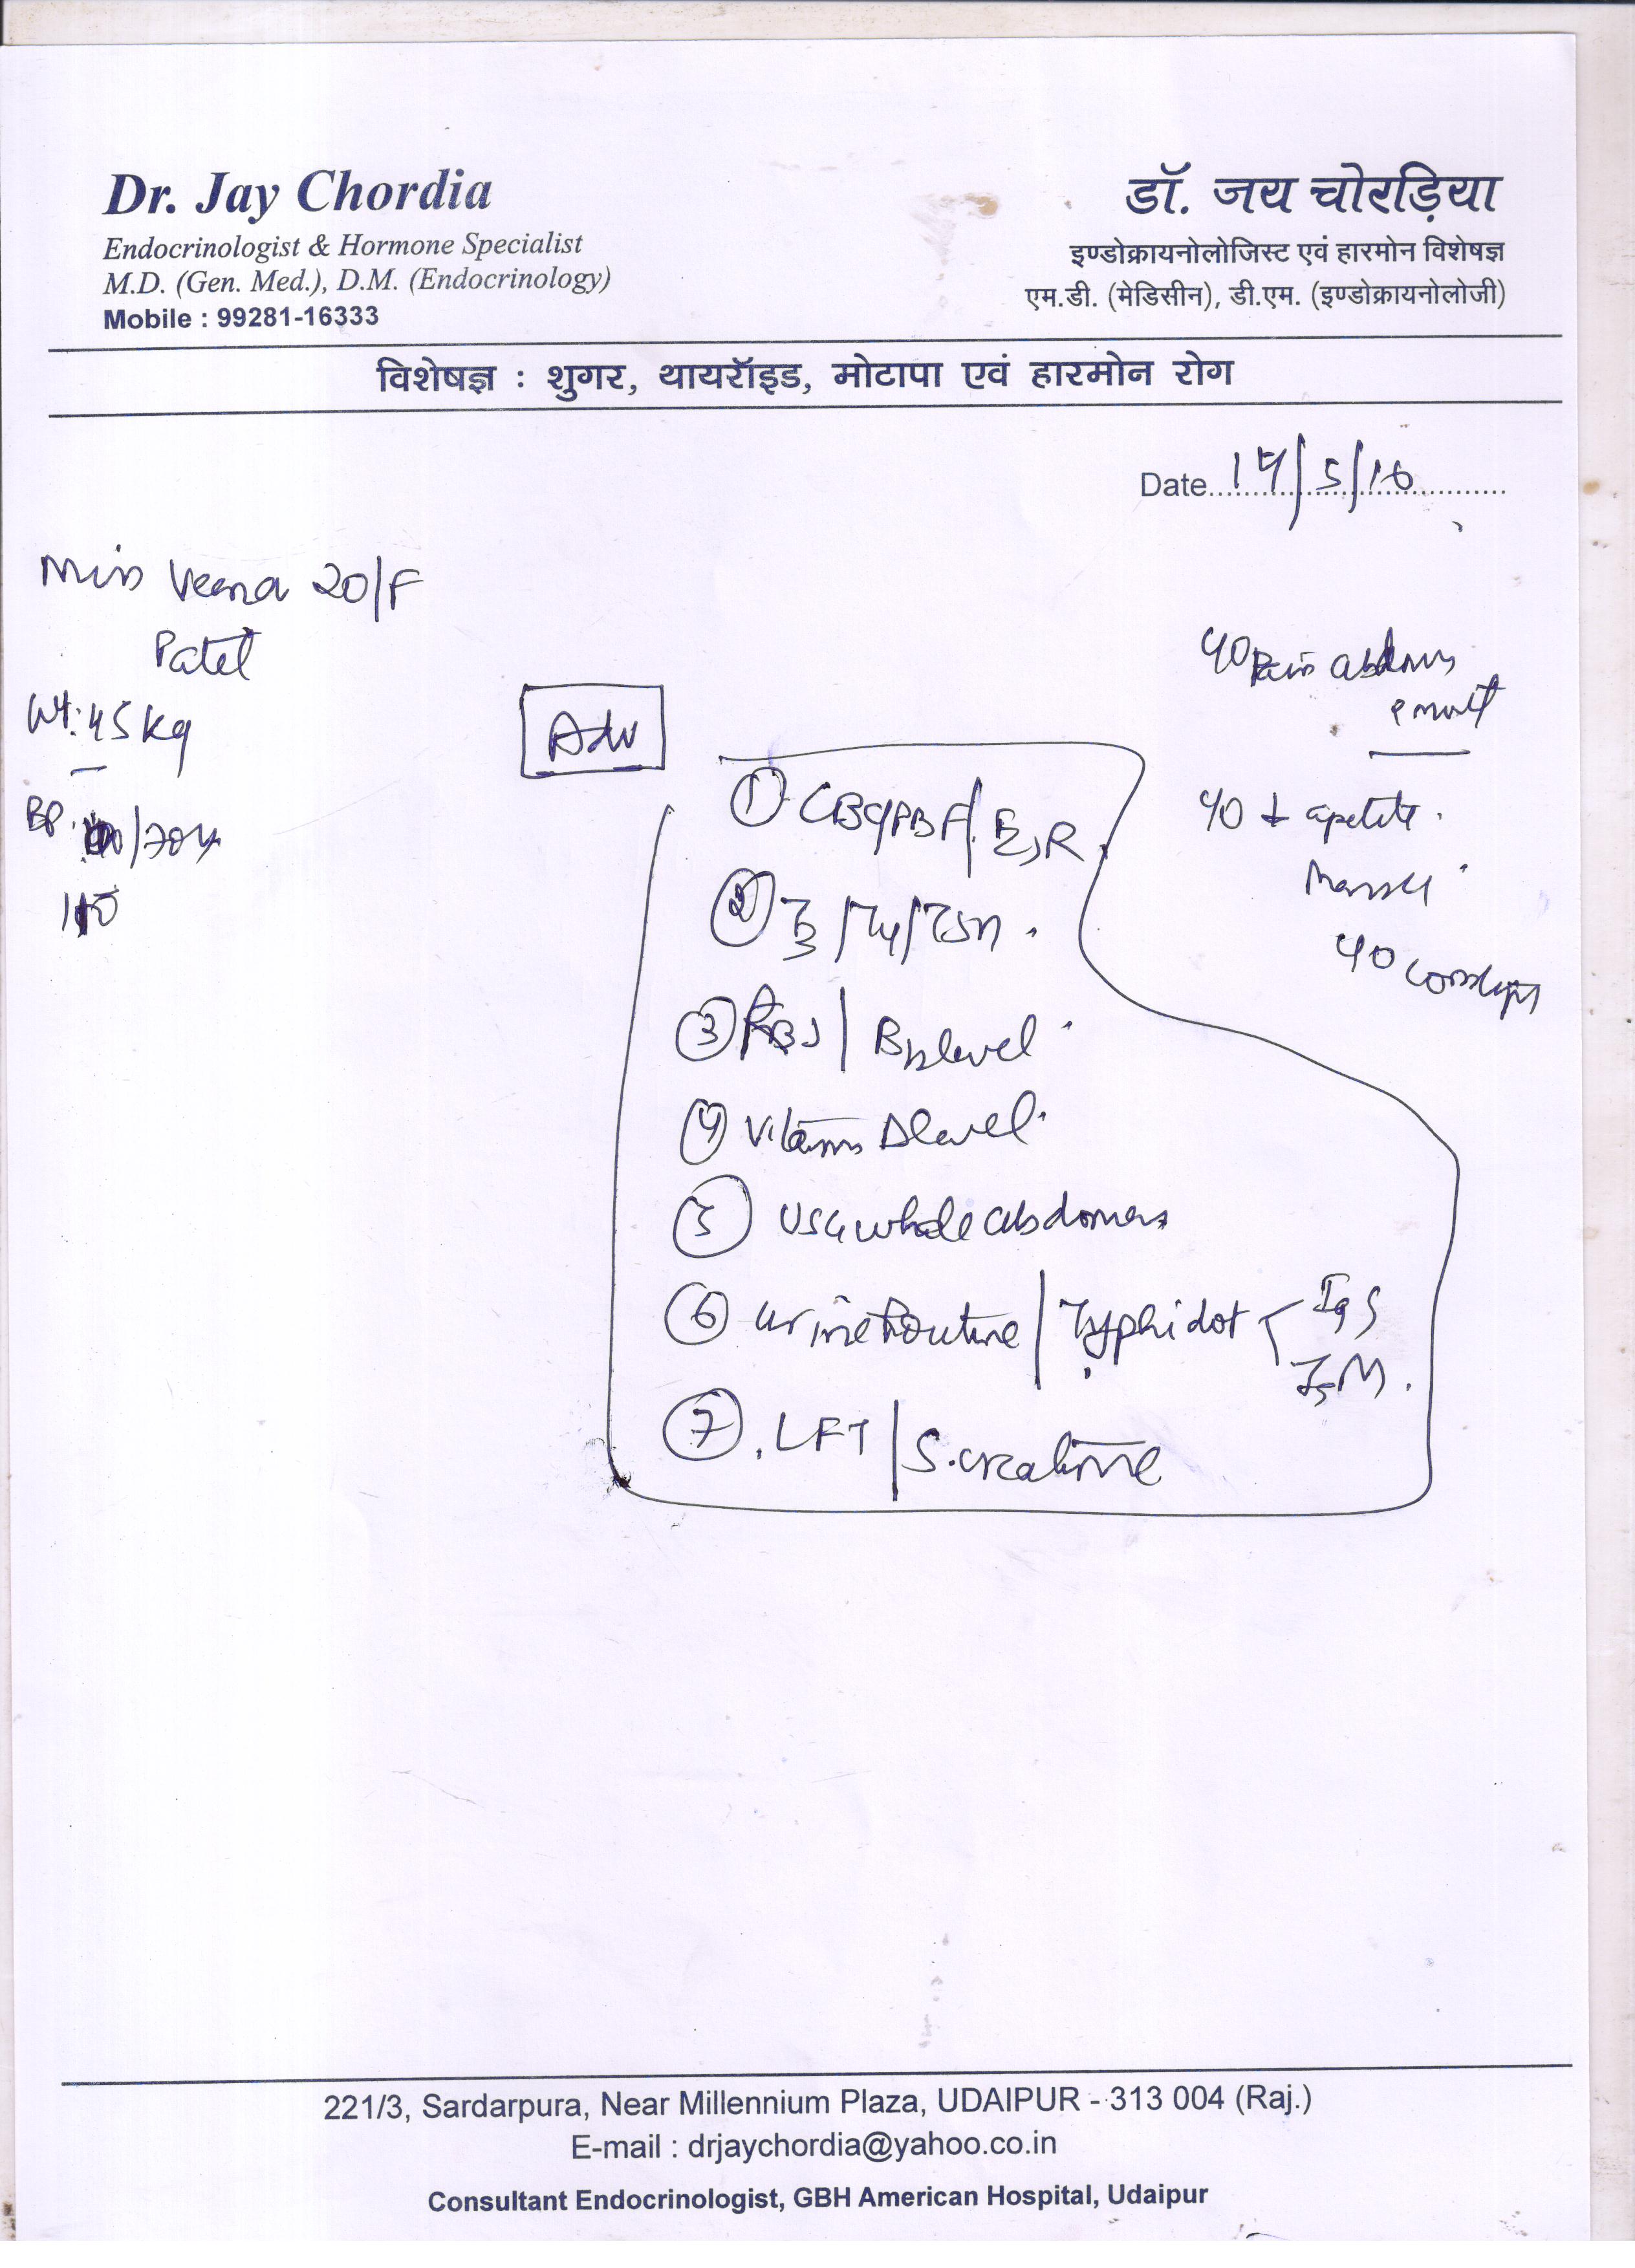 Dr. Jay Chordia
Endocrinologist & Hormone Specialist
M.D. (Gen. Med.), D.M. (Endocrinology)
Mobile : 99281-16333
डॉ. जय चोरड़िया
इण्डोक्रायनोलोजिस्ट एवं हारमोन विशेषज्ञ
एम.डी. (मेडिसीन), डी.एम. (इण्डोक्रायनोलोजी)
विशेषज्ञ : शुगर, थायरॉइड, मोटापा एवं हारमोन रोग
Date 14/5/16
Miss Veena 20/F
Patel
Wt: 45 kg
BP: /70
110
Pain abdomen
↓ apetite.
Adv
① CBC/PBF/ESR
② T3/T4/TSH.
③ RBS/B12 level
④ Vitamin D level.
⑤ USG whole abdomen
⑥ Urine Routine/Typhidot IgG
IgM.
⑦ LFT/S. creatinine
221/3, Sardarpura, Near Millennium Plaza, UDAIPUR - 313 004 (Raj.)
E-mail : drjaychordia@yahoo.co.in
Consultant Endocrinologist, GBH American Hospital, Udaipur